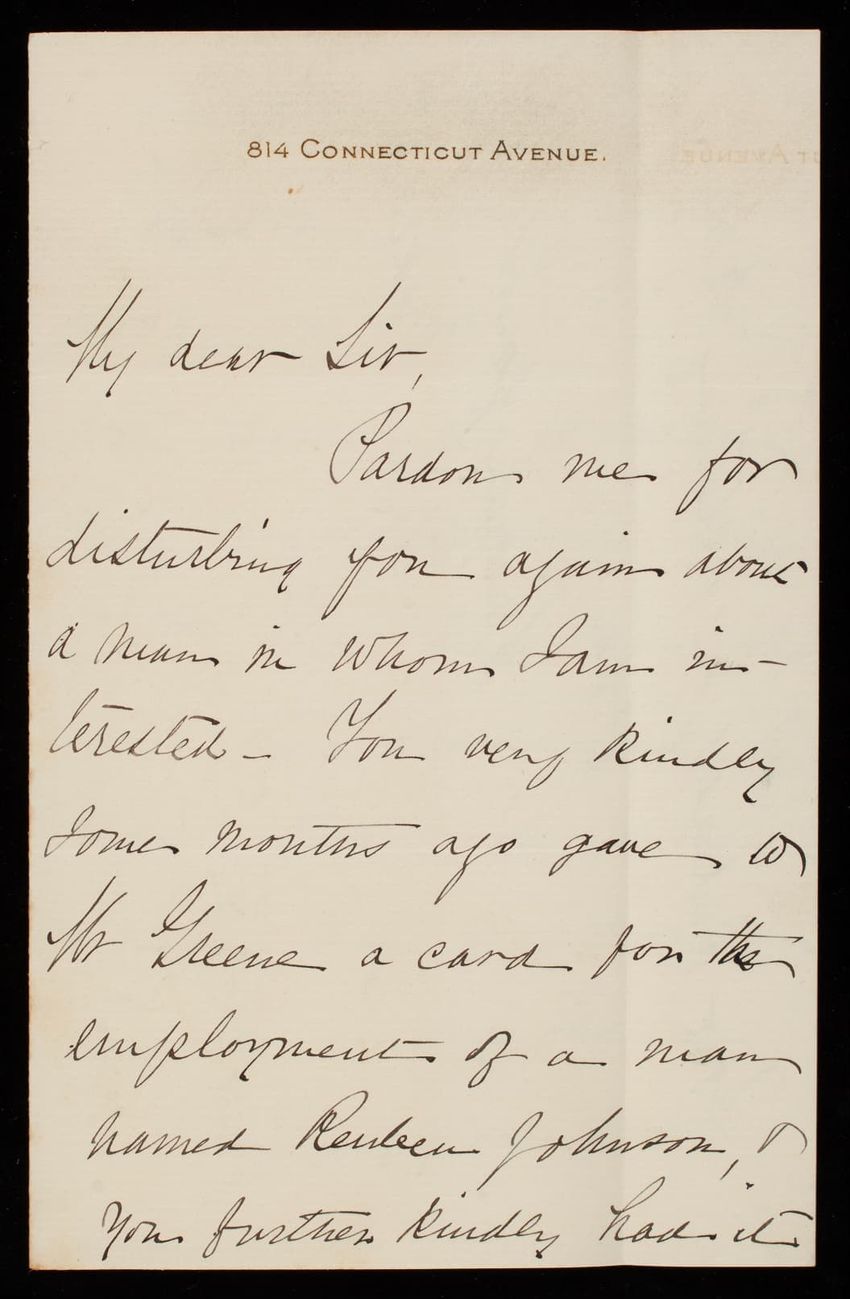 814 CONNECTICUT AVENUE.
My dear Sir,
Pardon me for
disturbing you again about
a man in whom I am in-
terested - You very kindly
some months ago gave to
Mr Greene a card for the
employment of a man
named Reuben Johnson, &
you further kindly had it